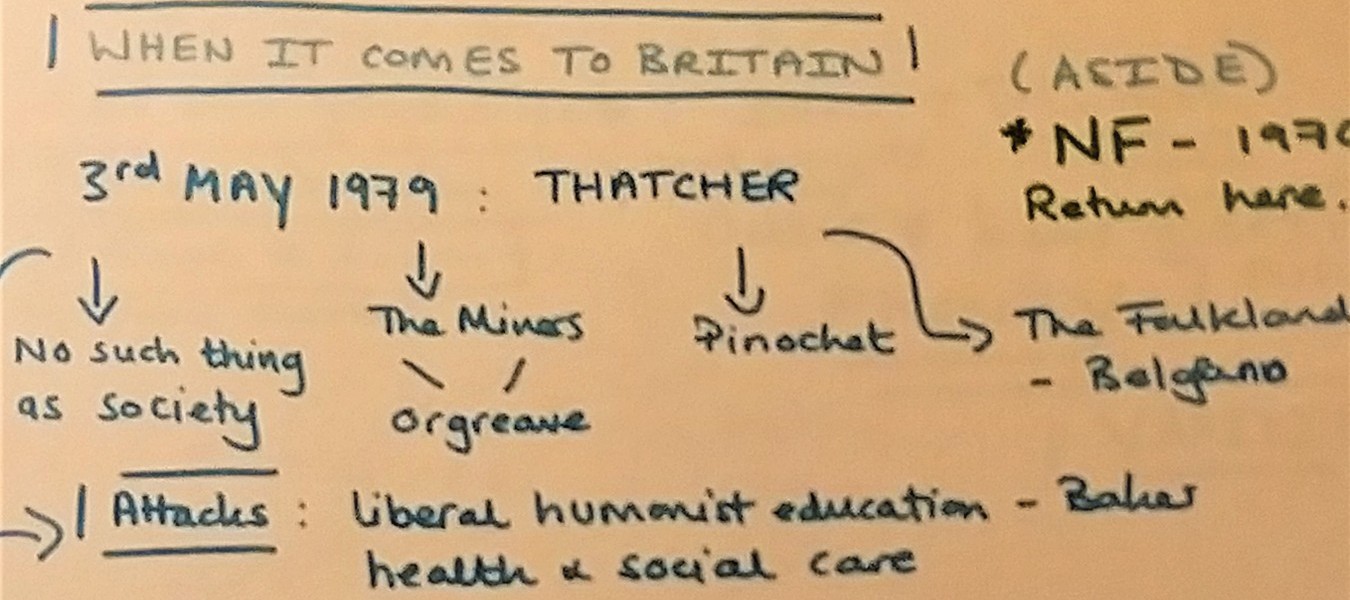 WHEN IT COMES TO BRITAIN
(ASIDE)
* NF - 197
Return here.
3rd MAY 1979 : THATCHER
No such thing
as society
The Miners
Orgreave
Pinochet
The Falkland
- Belgrano
Attacks : liberal humanist education - Baker
health & social care